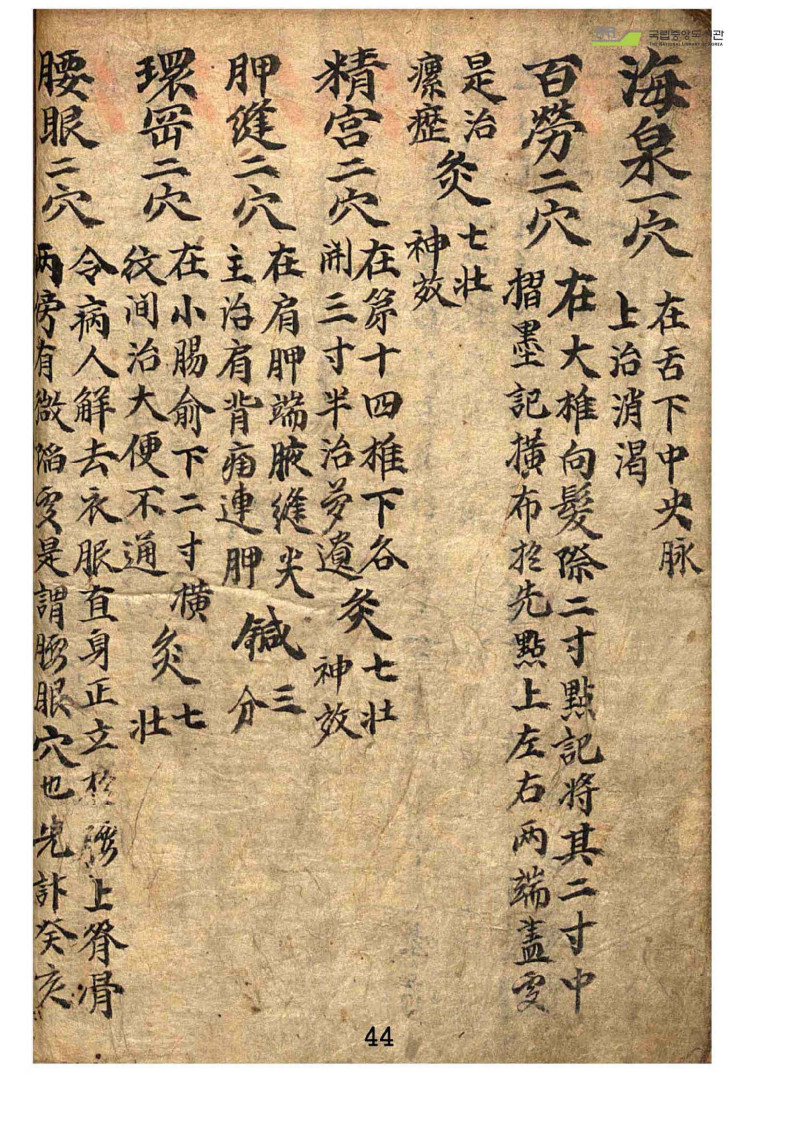 국립중앙도서관
THE NATIONAL LIBRARY OF KOREA
海泉一穴 在舌下中央脉
上治消渴
百勞二穴 在大椎向髮際二寸點記將其二寸中
摺墨記橫布扵先點上左右两端盖䖏
是治
瘰癧 灸 七壮
神效
精宮二穴 在第十四椎下各
開三寸半治夢遺 灸 七壮
神效
胛縫二穴 在肩胛端腋縫尖
主治肩背痛連胛 鍼 三
分
環岡二穴 在小腸俞下二寸橫
紋间治大便不通 灸 七
壮
腰眼二穴 令病人解去衣服直身正立扵腰上脊骨
两傍有微陷䖏是謂腰眼穴也先計癸亥
44